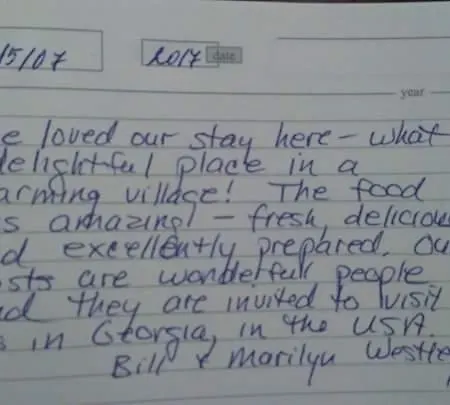 15/07
2017 date
year
e loved our stay here - what
delightful place in a
arming village! The food
s amazing! - fresh, deliciou
d excellently prepared. Ou
sts are wonderfull people
nd they are invited to visit
s in Georgia, in the USA.
Bill & Marilyn Westte